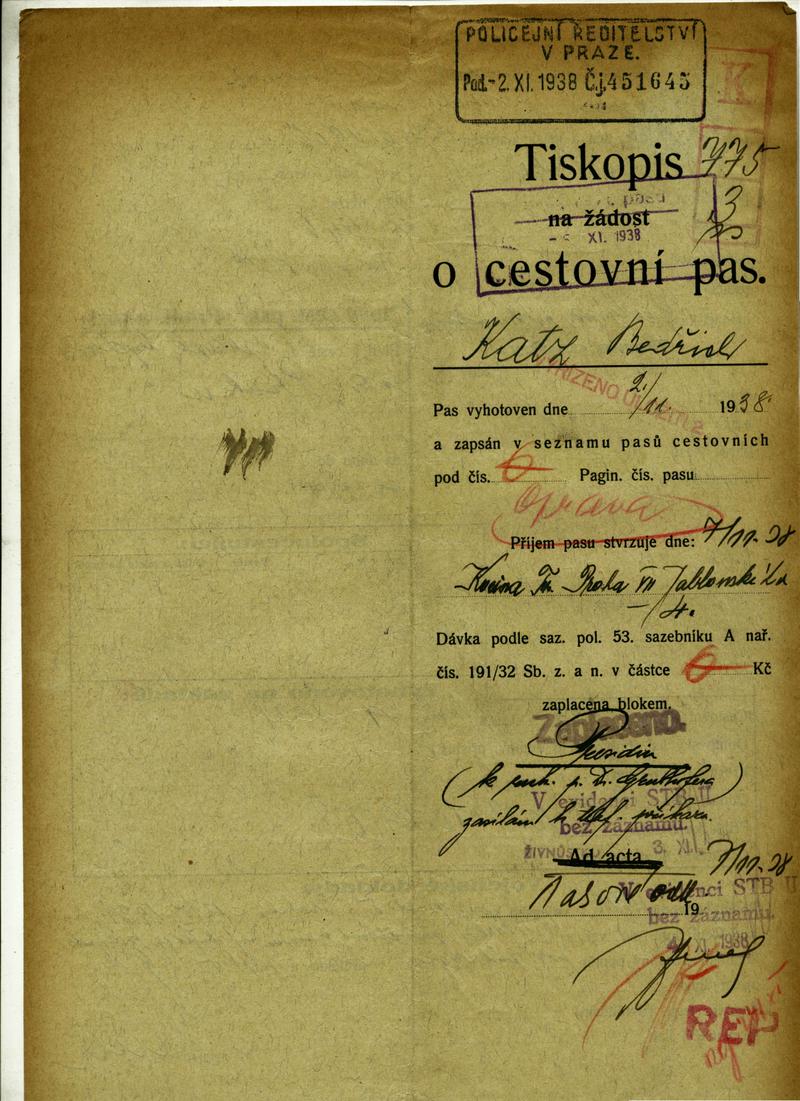 POLICEJNÍ ŘEDITELSTVÍ
V PRAZE.
Pod. - 2. XI. 1938 Č.j. 451645
K
Tiskopis 775
3
na žádost
XI. 1938
o cestovní pas.
Katz Bedřich
Pas vyhotoven dne 2./11. 1938
a zapsán v seznamu pasů cestovních
pod čís. 6 Pagin. čís. pasu
Oprava
Příjem pasu stvrzuje dne: 7/11. 38
Praha VII
Dávka podle saz. pol. 53. sazebníku A nař.
čís. 191/32 Sb. z. a n. v částce Kč
zaplacena blokem.
Zaplaceno.
Presidiu
zasílám k
V evidenci STB II
bez záznamu.
3. XI.
Ad acta 7/11. 38
Pasové odd. 19
V evidenci STB II
bez záznamu.
XI. 1938
REP